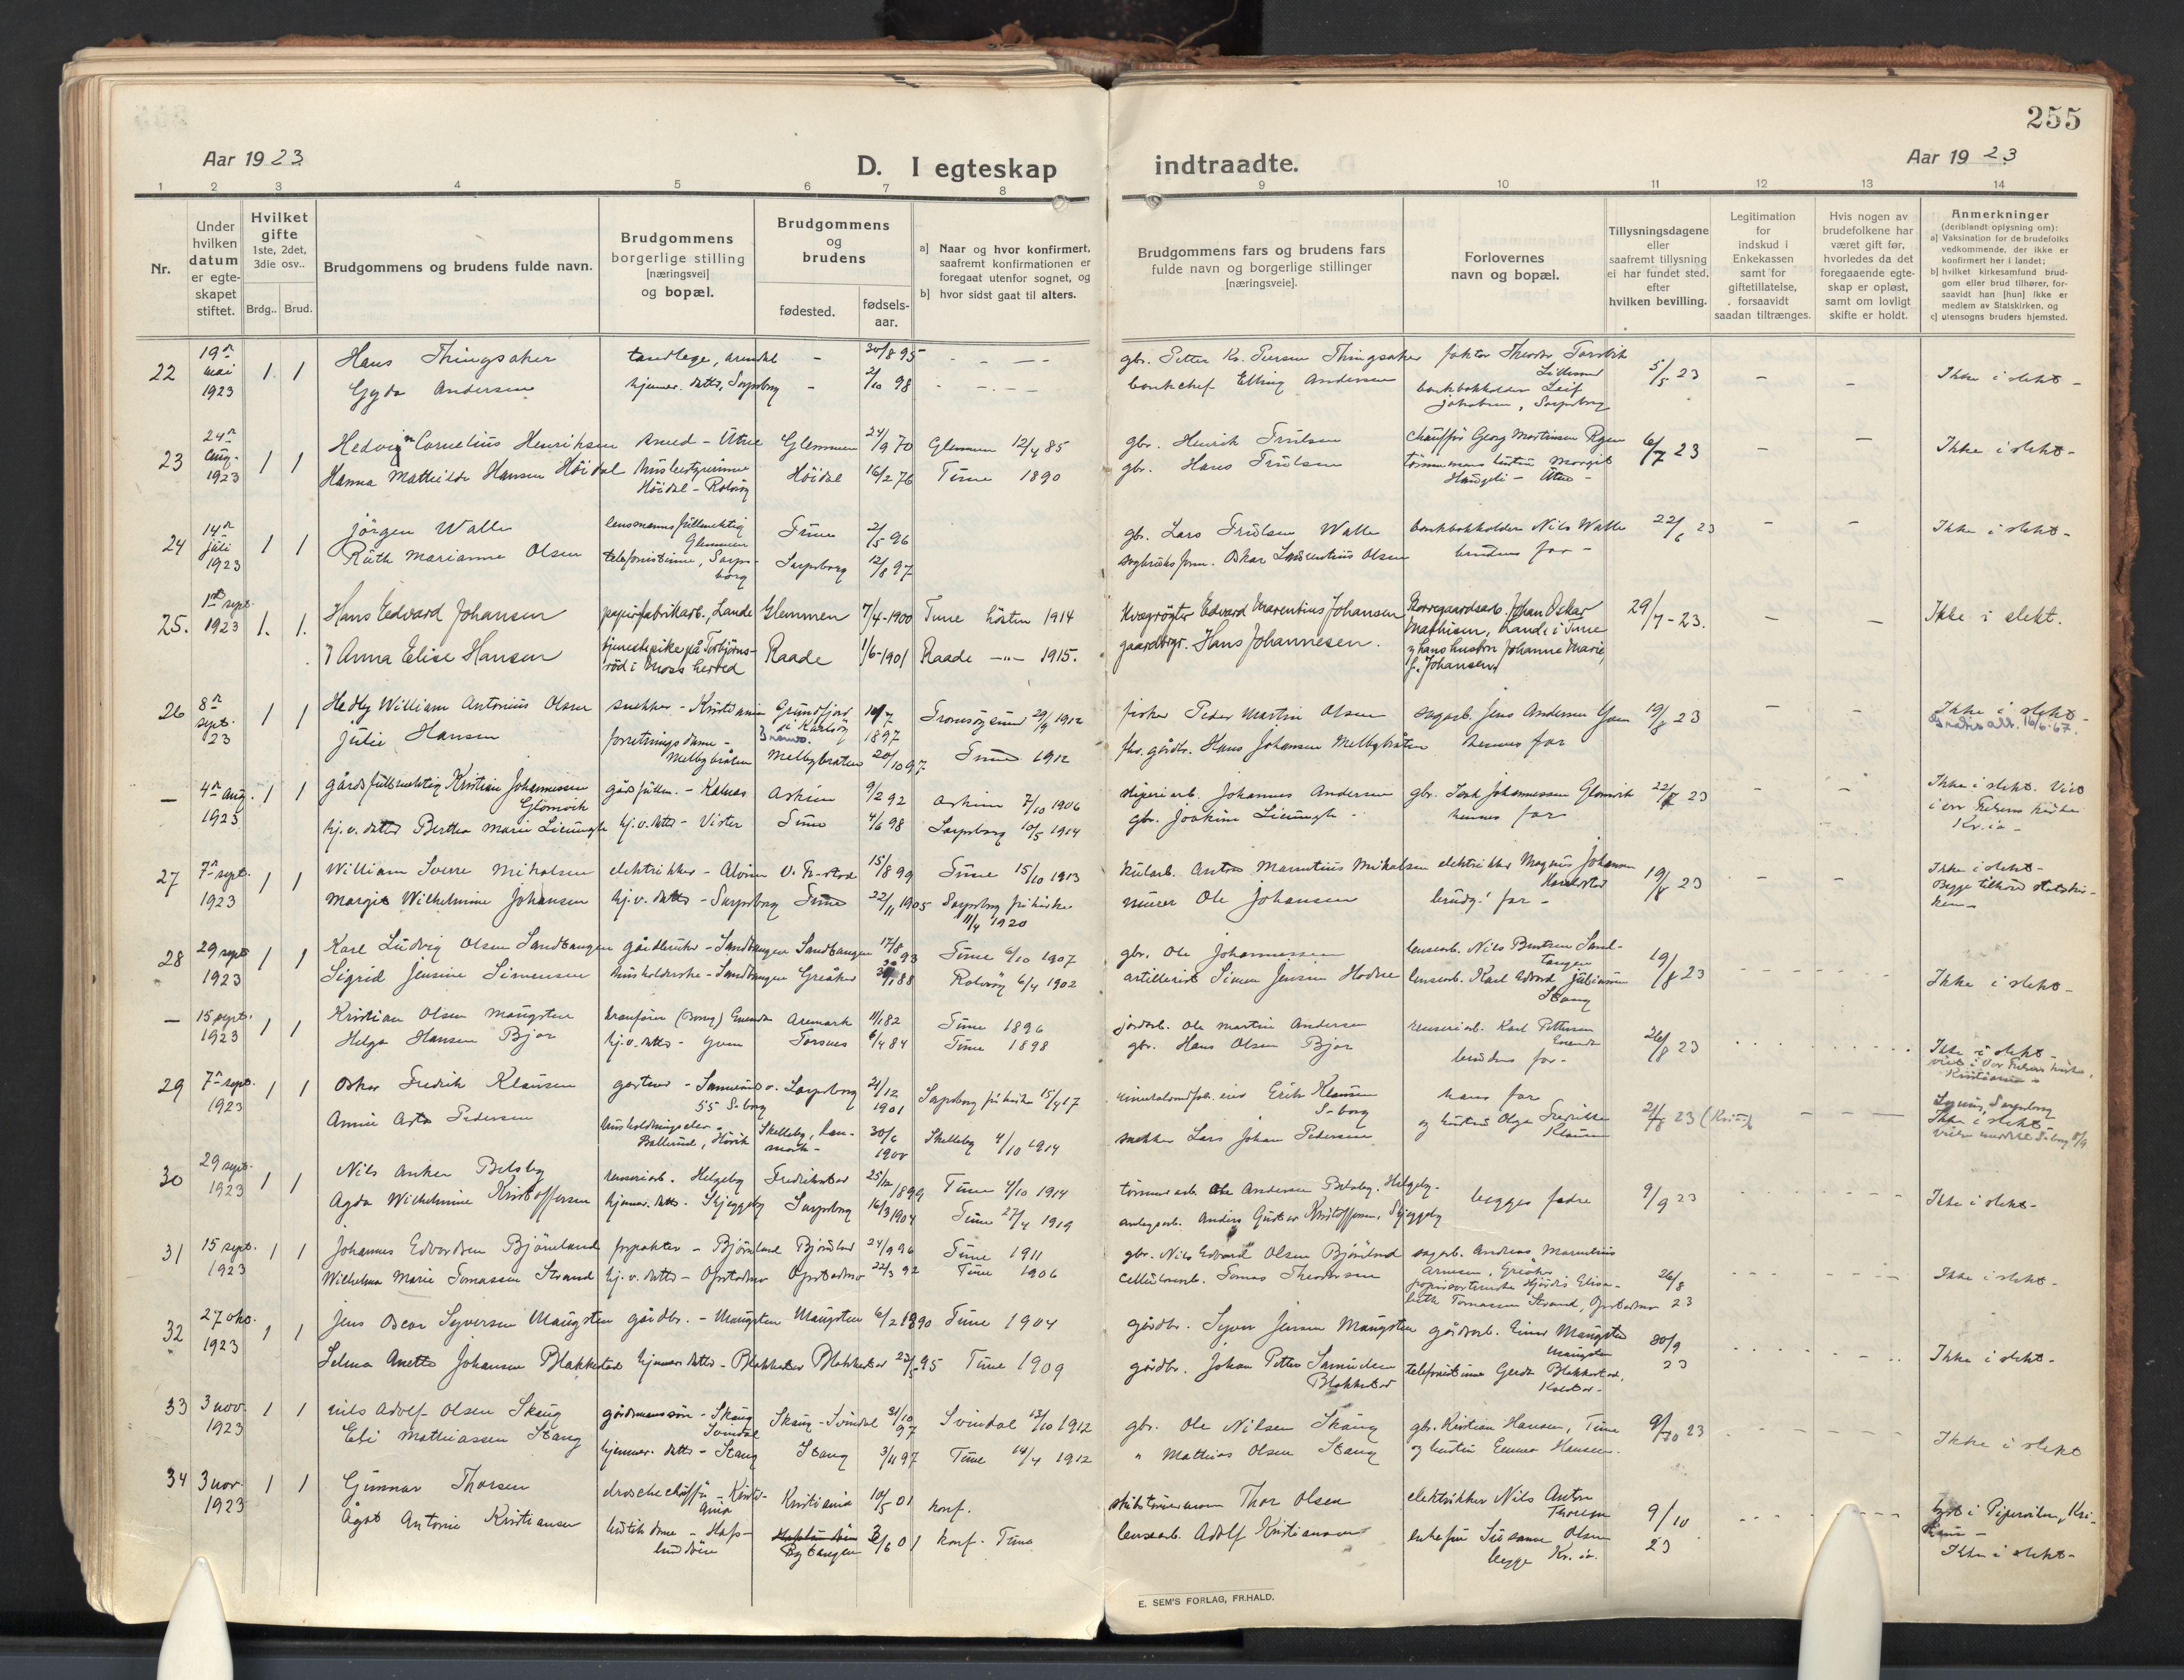 255
Aar 1923
D. I egteskap indtraadte.
Aar 1923
1 2 3 4 5 6 7 8 9 10 11 12 13 14
Nr.
Under hvilken datum er egteskapet stiftet.
Hvilket gifte 1ste, 2det, 3die osv..
Brdg.. Brud.
Brudgommens og brudens fulde navn.
Brudgommens borgerlige stilling [næringsvei] og bopæl.
Brudgommens og brudens
fødested.
fødsels-aar.
a] Naar og hvor konfirmert, saafremt konfirmationen er foregaat utenfor sognet, og
b] hvor sidst gaat til alters.
Brudgommens fars og brudens fars fulde navn og borgerlige stillinger [næringsveie].
Forlovernes navn og bopæl.
Tillysningsdagene eller saafremt tillysning ei har fundet sted, efter hvilken bevilling.
Legitimation for indskud i Enkekassen samt for giftetillatelse, forsaavidt saadan tiltrænges.
Hvis nogen av brudefolkene har været gift før, hvorledes da det foregaaende egteskap er opløst, samt om lovligt skifte er holdt.
Anmerkninger (deriblandt oplysning om):
a] Vaksination for de brudefolks vedkommende, der ikke er konfirmert her i landet;
b] hvilket kirkesamfund brudgom eller brud tilhører, forsaavidt han [hun] ikke er medlem av Statskirken, og
c] utensogns bruders hjemsted.
22 19 mai 1923 1 1 Hans Thingsaker tandlæge, Arendal - 30/8 95 gbr. Petter Kr. Thingsaker faktor Theodor 5/5 23 - - Ikke i slekt -
Gyda Andersen hjemmev. datter, Sarpsborg - 2/10 98 bankchef Elling Andersen bankbokholder Leif Jakobsen, Sarpsborg
23 24 aug. 1923 1 1 Hedvin Cornelius Henriksen smed - Utne Glemmen 24/9 70 Glemmen 12/4 85 gbr. Henrik Trulsen chauffør Georg Martinsen 6/7 23 - - Ikke i slekt -
Hanna Mathilde Hansen Höidal husbestyrerinne Höidal - Rolvsöy Höidal 16/2 76 Tune 1890 gbr. Hans Trulsen tömmermans hustru Margit Haugeli - Utne -
24 14 juli 1923 1 1 Jörgen Walle lensmannsfullmektig Glemmen Tune 2/5 96 gbr. Lars Trulsen Walle bankbokholder Nils Walle 22/6 23 - - Ikke i slekt -
Ruth Marianne Olsen telefonistinne, Sarpsborg Sarpsborg 12/8 97 Oskar Laurentius Olsen brudens far -
25. 1ste sept. 1923 1. 1. Hans Edvard Johansen papirfabrikarb., Lande Glemmen 7/4-1900 Tune hösten 1914 Kvægrögter Edvard Marentius Johansen Johan Oskar Mathisen, Lande i Tune 29/7-23. - - Ikke i slekt.
Anna Elise Hansen tjenestepike på Torbjörnsröd i Moss herred Raade 1/6-1901 Raade -"- 1915. gaardbrgr. Hans Johannesen. og hans hustru Johanne Marie, f. Johansen
26 8 sept. 23 1 1 Hedly William Antonius Olsen snekker - Kristiania Grundfjord i Karlsöy 10/7 1897 Tromsöysund 29/9 1912 fisker Peder Martin Olsen sagarb. Jens Andersen 19/8 23 - - Ikke i slekt -
Julie Hansen forretningsdame - Melbybråten Melbybråten 20/10 97 Tune 1912 fhv. gårdbr. Hans Johansen Melbybråten hennes far
- 4 aug. 1923 1 1 gårdsfullmektig Kristian Johannessen Glomvik gårdsfullm. - Kalnes Askim 9/2 92 Askim 7/10 1906 sliperiarb. Johannes Andersen gbr. Johannessen Glomvik 22/7 23 - - Ikke i slekt. Viet i vor Frelsers kirke Kr.ia -
hj.v. datter Berthea Marie Lieungh hj.v. datter - Vister Tune 4/6 98 Sarpsborg 10/5 1914 gbr. Joakim Lieungh - hennes far
27 7 sept. 1923 1 1 William Sverre Mikalsen elektriker - Alvim V. Fr-stad 15/8 99 Tune 15/10 1913 Anton Marentius Mikalsen elektriker Magnus Johansen 19/8 23 - - Ikke i slekt -
Margit Wilhelmine Johansen hj.v. datter - Sarpsborg Tune 22/11 1905 Sarpsborg frikirke 11/4 1920 murer Ole Johansen brudg. far - Begge tilhörer statskirken -
28 29 sept 1923 1 1 Karl Ludvig Olsen Sandtangen gårdbruker - Sandtangen Sandtangen 17/8 93 Tune 6/10 1907 gbr. Ole Johannessen lensearb. Nils Berntsen Sandtangen 19/8 23 Ikke i slekt -
Sigrid Jensine Simensen husholderske - Sandtangen Greåker 88 Rolvsöy 6/4 1902 artillerist Simen Jensen lensearb. Karl Edvard Juliussen Stang
- 15 sept. 1923 1 1 Kristian Olsen Maugsten kranförer (Borreg) Enenda Aremark 11/1 82 Tune 1896 jordarb. Ole Martin Andersen renseriarb. Karl Pettersen 26/8 23 Ikke i slekt -
Helga Hansen Bjor hj.v. datter - Yven Torsnes 6/4 84 Tune 1898 gbr. Hans Olsen Bjor brudens far - viet i Vor Frelsers kirke, Kristiania -
29 7 sept. 1923 1 1 Oskar Fredrik Klausen gartner - 55 S-borg Sarpsborg 21/12 1901 Sarpsborg frikirke 15/4 17 Erik Klausen S-borg hans far 21/8 23 - -
Annie Asta Pedersen husholdningselev - Skelleby, Danmark - 30/6 1900 Skelleby 4/10 1914 snekker Lars Johan Pedersen og hustru Olga Fredrikke Klausen Ikke i slekt -
30 29 sept. 1923 1 1 Nils Anker Belsby renseriarb. Helgeby Fredrikstad 25/12 1899 Tune 4/10 1914 tömmerarb. Ole Andersen Belsby, Helgeby - begges fedre 9/9 23 Ikke i slekt -
Agda Wilhelmine Kristoffersen hjemmev. datter. Skjeggeby Sarpsborg 16/3 1904 Tune 27/4 1919 anlegsarb. Anders Gustav Kristoffersen, Skjeggeby
31 15 sept. 1923 1 1 Johannes Edvardsen Björnland forpakter - Björnland Björnland 24/9 96 Tune 1911 gbr. Nils Edvard Olsen Björnland sagarb. Andreas Marenlius Arnesen, Greåker 26/8 23 Ikke i slekt -
Wilhelma Marie Tomassen Strand hj.v. datter - Opstadmo Opstadmo 22/3 92 Tune 1906 Tomas Theodorsen papirsortererske Hjördis Elisabeth Tomassen Strand, Opstadmo
32 27 okt. 1923 1 1 Jens Oscar Syversen Maugsten gårdbr. - Maugsten Maugsten 6/2 1890 Tune 1904 gårdbr. Syver Jensen Maugsten gårdsarb. Einar Maugsten Maugsten 30/9 23 Ikke i slekt -
Selma Anette Johansen Blakkestad hjemmev. datter - Blakkestad Blakkestad 23/5 95 Tune 1909 gårdbr. Johan Petter Samuelsen Blakkestad telefonistinne Gerda Blakkestad,
33 3 nov 1923 1 1 Nils Adolf Olsen Skaug gårdmannssön - Skaug Svindal Skaug - Svindal 31/10 97 Svindal 13/10 1912 gbr. Ole Nilsen Skaug gbr. Kristian Hansen, Tune 9/10 23 Ikke i slekt
Ebi Mathiassen Stang hjemmev. datter - Stang Stang 3/11 97 Tune 14/4 1912 " Mathias Olsen Stang og hustru Emma Hansen -
34 3 nov. 1923 1 1 Gunnar Thorsen droschechafför - Kristiania Kristiania 10/5 01 konf. skibstömmermann Thor Olsen elektrikker Nils Anton Thorsen 9/10 23 lyst i Pipervilen, Kristiania -
Ågot Antonie Kristiansen butikdame - Hafslundsöen Bytangen 3/6 01 konf. Tune lensearb. Adolf Kristiansen enkefru Susanne Olsen begge Kr.ia. Ikke i slekt -
E. SEM'S FORLAG, FR.HALD.